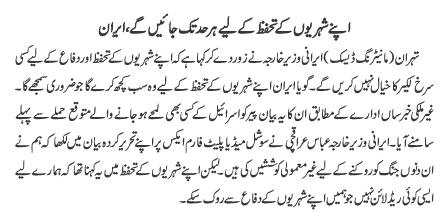 اپنے شہریوں کے تحفظ کے لیے ہر حد تک جائیں گے، ایران
تہران (مانیٹرنگ ڈیسک) ایرانی وزیر خارجہ نے زور دے کر کہا ہے کہ اپنے شہریوں کے تحفظ اور دفاع کے لیے کسی
سرخ لکیر کا خیال نہیں کریں گے۔ گویا ایران اپنے شہریوں کے تحفظ کے لیے وہ سب کچھ کرے گا جو ضروری سمجھے گا۔
غیر ملکی خبر رساں ادارے کے مطابق ان کا یہ بیان پیر کو اسرائیل کے کسی بھی لمحے ہو جانے والے متوقع حملے سے پہلے
سامنے آیا۔ ایرانی وزیر خارجہ عباس عراقچی نے سوشل میڈیا پلیٹ فارم ایکس پر اپنے تحریر کردہ بیان میں لکھا کہ ہم نے
ان دنوں جنگ کو روکنے کے لیے غیر معمولی کوششیں کی ہیں۔ لیکن اپنے شہریوں کے تحفظ میں یہ کہنا تھا کہ ہمارے لیے
ایسی کوئی ریڈ لائن نہیں جو ہمیں اپنے شہریوں کے دفاع سے روک سکے۔